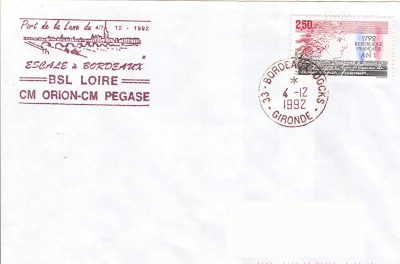 Port de la Lune du 4/7 12 - 1992
ESCALE à BORDEAUX
BSL LOIRE
CM ORION-CM PEGASE
2,50
1792
RÉPUBLIQUE
FRANÇAISE
AN I
33 - BORDEAUX DOCKS -
*
4 -12
1992
GIRONDE